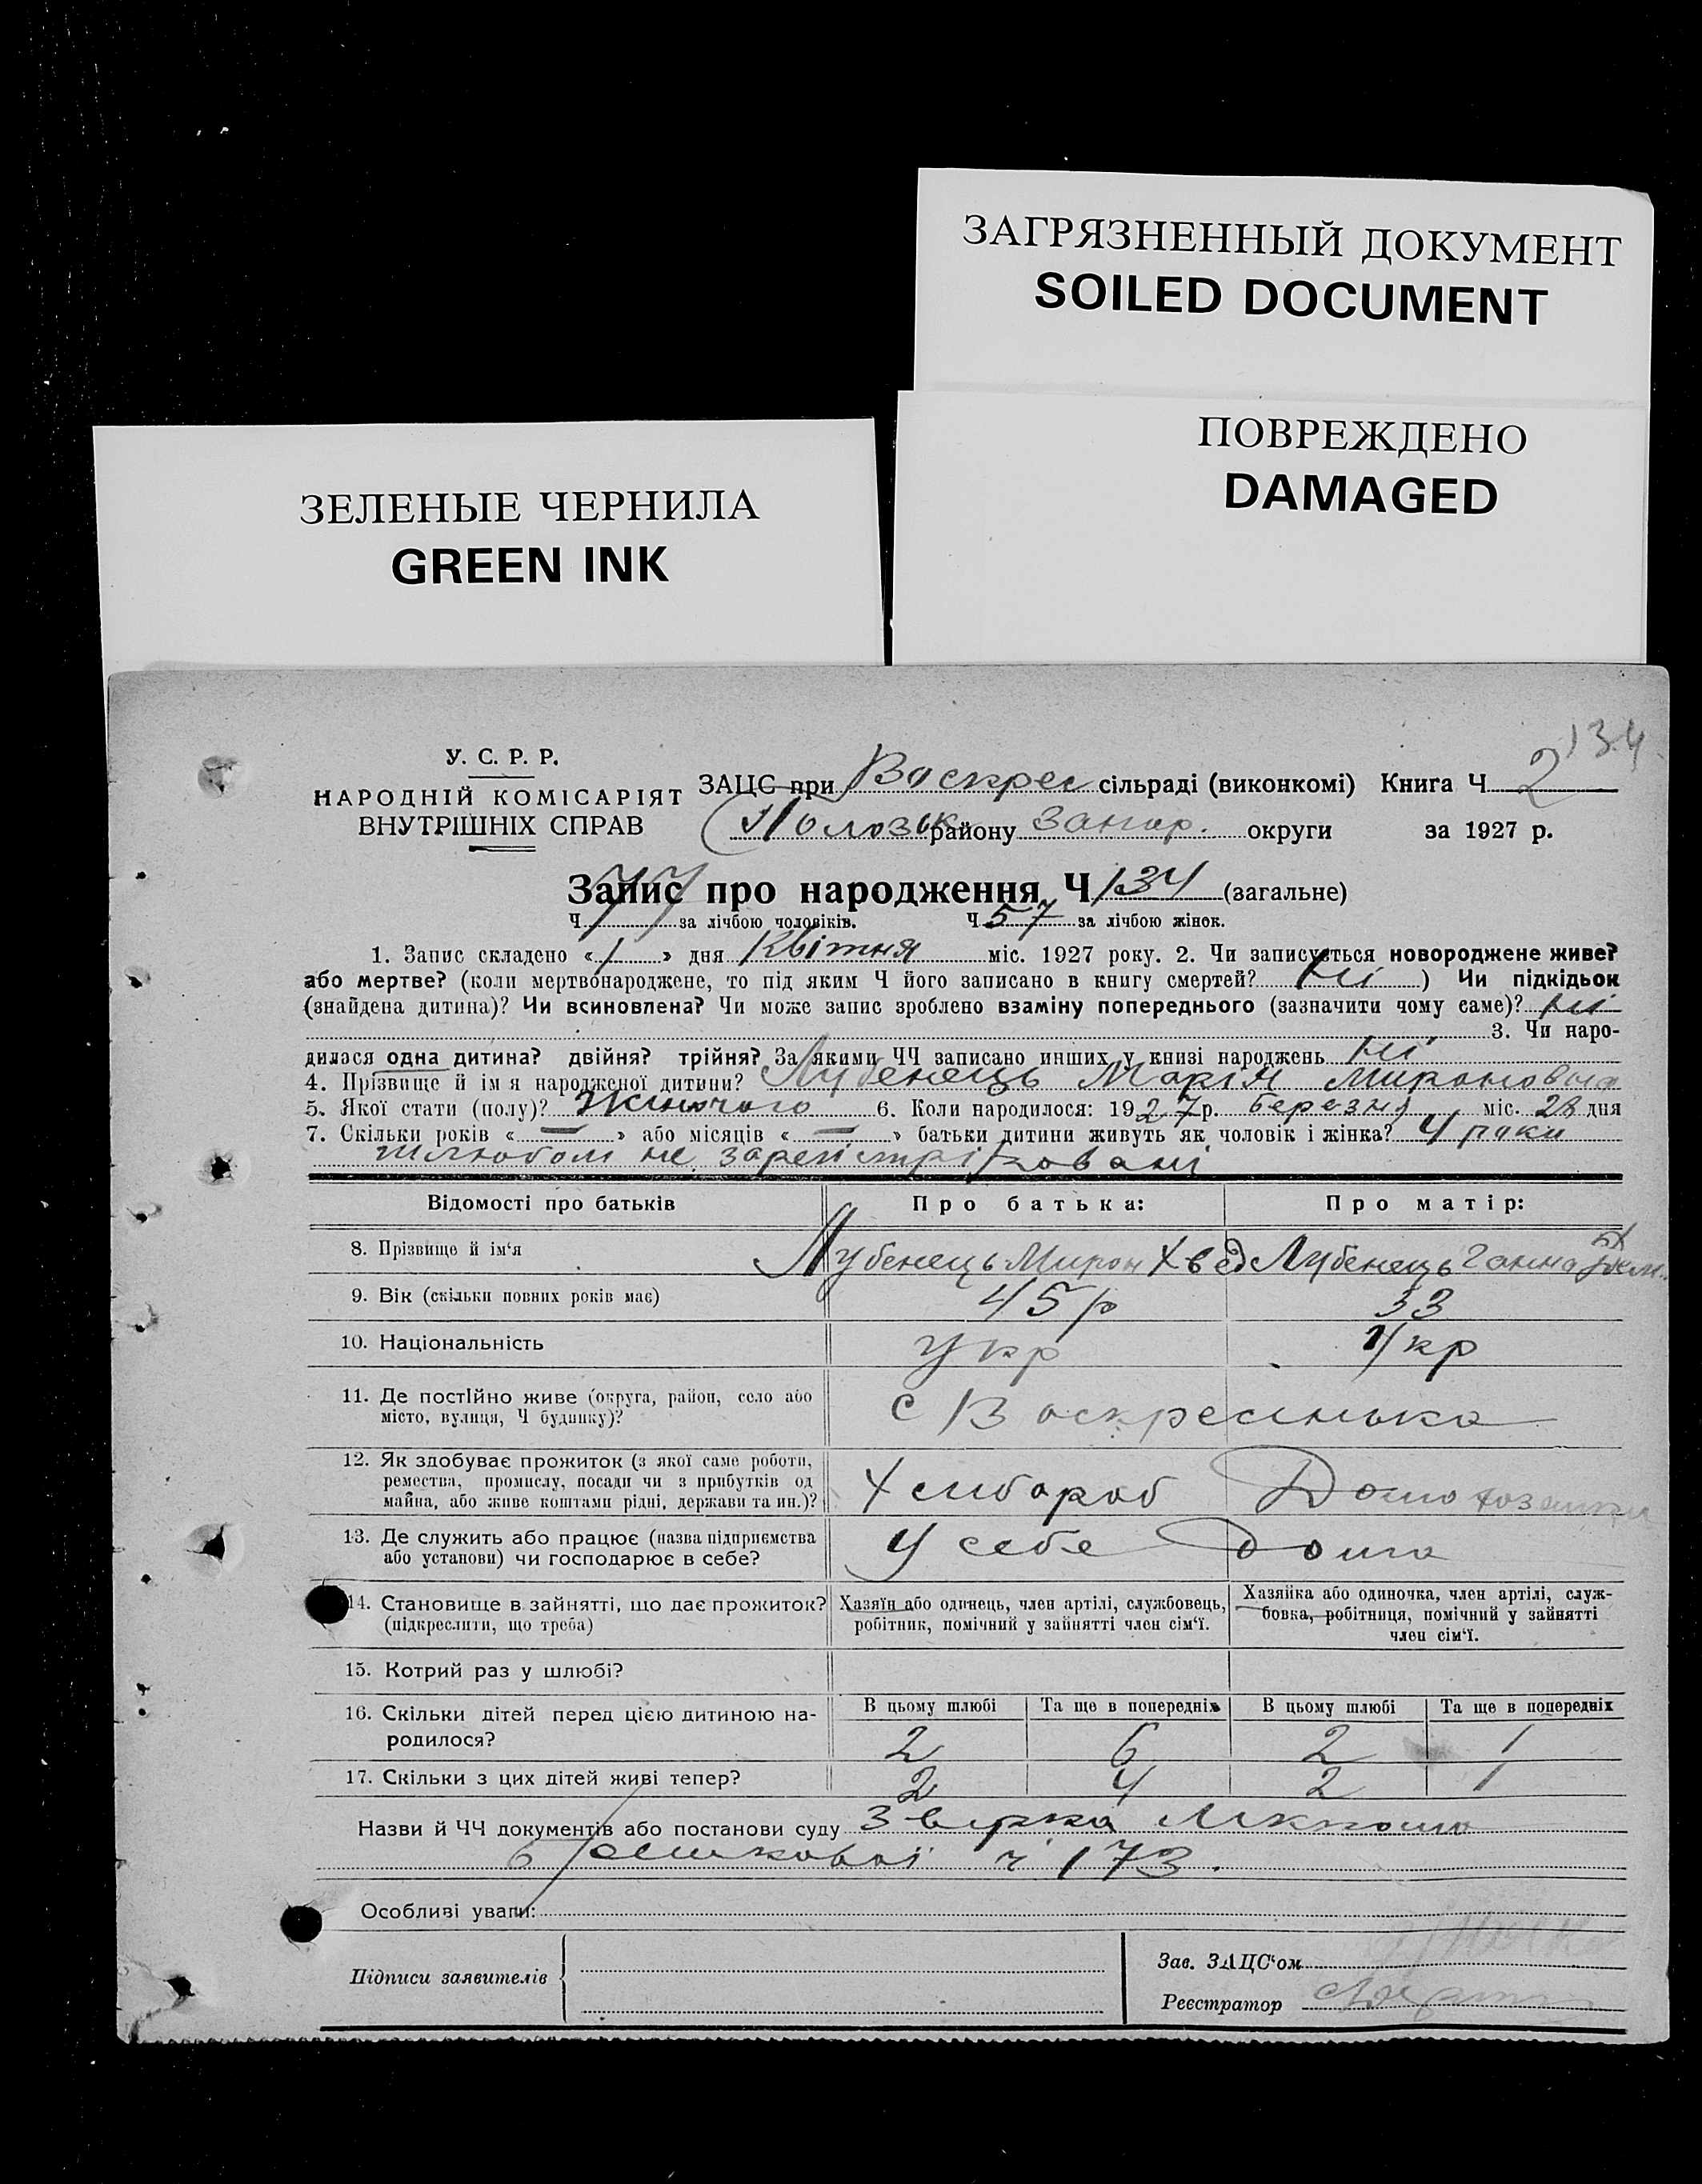 ЗАГРЯЗНЕННЫЙ ДОКУМЕНТ
SOILED DOCUMENT
ПОВРЕЖДЕНО
DAMAGED
ЗЕЛЕНЫЕ ЧЕРНИЛА
GREEN INK
134
У. С. Р. Р.
НАРОДНІЙ КОМІСАРІЯТ
ВНУТРІШНІХ СПРАВ
ЗАЦС при Воскрес сільраді (виконкомі) Книга Ч 2
Полозьк району Запор. округи за 1927 р.
Запис про народження Ч 134 (загальне)
Ч 77 за лічбою чоловіків. Ч 57 за лічбою жінок.
1. Запис складено « 1 » дня Квітня міс. 1927 року. 2. Чи записується новороджене живе?
або мертве? (коли мертвонароджене, то під яким Ч його записано в книгу смертей? Ні ) Чи підкідьок
(знайдена дитина)? Чи всиновлена? Чи може запис зроблено взаміну попереднього (зазначити чому саме)? Ні
3. Чи наро-
дилася одна дитина? двійня? трійня? За якими ЧЧ записано инших у книзі народжень Ні
4. Прізвище й ім я народженої дитини? Лубенець Марія Мироновна
5. Якої стати (полу)? Жіночого 6. Коли народилося: 1927 р. березня міс. 28 дня
7. Скільки років « — » або місяців « — » батьки дитини живуть як чоловік і жінка? 4 роки
шлюбом не зарегістріровані
Відомості про батьків Про батька: Про матір:
8. Прізвище й ім‘я Лубенець Мирон Хвед Лубенець Ганна
9. Вік (скільки повних років має) 45 р 33
10. Національність укр укр
11. Де постІйно живе (округа, район, село або
місто, вулиця, Ч будинку)? с Воскресенька
12. Як здобуває прожиток (з якої саме роботи,
ремества, промислу, посади чи з прибутків од
майна, або живе коштами рідні, держави та ин.)? Хлибороб Домохозяйка
13. Де служить або працює (назва підприємства
або установи) чи господарює в себе? У себе дома
14. Становище в зайнятті, що дає прожиток?
(підкреслити, що треба)
Хазяїн або одинець, член артілі, службовець,
робітник, помічний у зайнятті член сім‘ї.
Хазяйка або одиночка, член артілі, служ-
бовка, робітниця, помічний у зайнятті
член сім‘ї.
15. Котрий раз у шлюбі?
В цьому шлюбі Та ще в попередніх В цьому шлюбі Та ще в попередніх
16. Скільки дітей перед цією дитиною на-
родилося? 2 6 2 1
17. Скільки з цих дітей живі тепер? 2 4 2 1
Назви й ЧЧ документів або постанови суду
ч 173.
Особливі уваги:
Підписи заявителів
Зав. ЗАЦС‘ом
Реєстратор